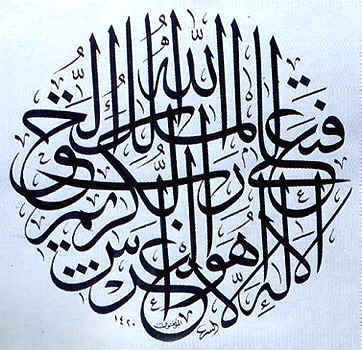 فتعالى الله الملك الحق لا إله إلا هو رب العرش الكريم
١٤٢٠